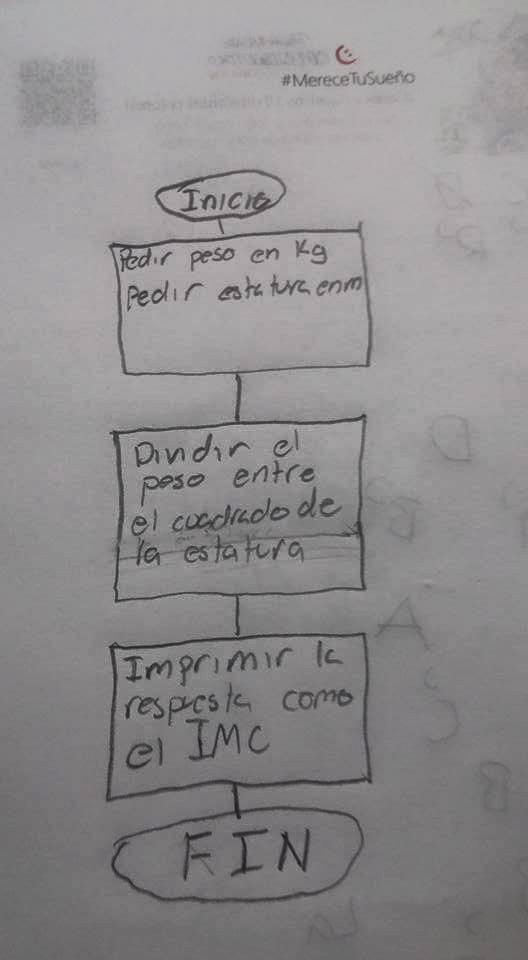 #MereceTuSueño
Inicio
Pedir peso en Kg
Pedir estatura en m
Dividir el
peso entre
el cuadrado de
la estatura
Imprimir la
respuesta como
el IMC
FIN